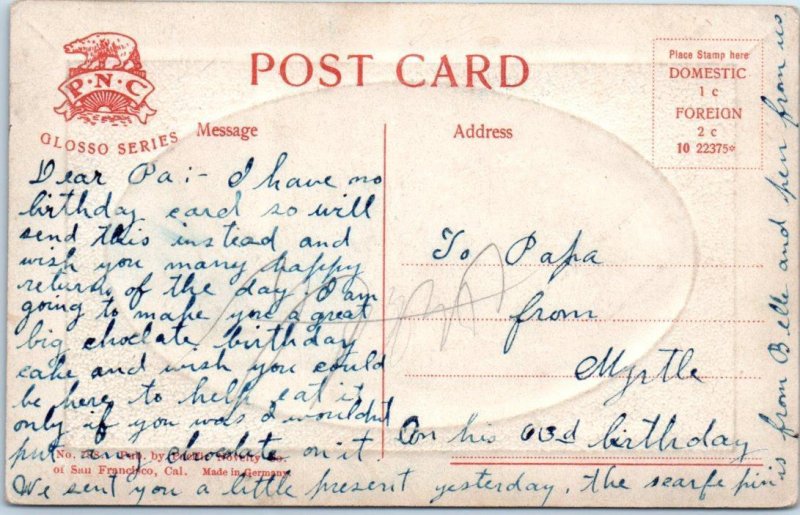 P·N·C
GLOSSO SERIES
POST CARD
Place Stamp here
DOMESTIC
1 c
FOREIGN
2 c
10 22375*
Message
Address
Dear Pa:- I have no
birthday card so will
send this instead and
wish you many happy
returns of the day I am
going to make you a great
big choclate birthday
cake and wish you could
be here to help eat it
only if you was I wouldn't
put any choclate on it
We sent you a little present yesterday, the scarfe pin
is from Belle and pen from us
To Papa
from
Myrtle
On his 63d birthday
No. Pub. by Pacific Novelty Co.
of San Francisco, Cal. Made in Germany